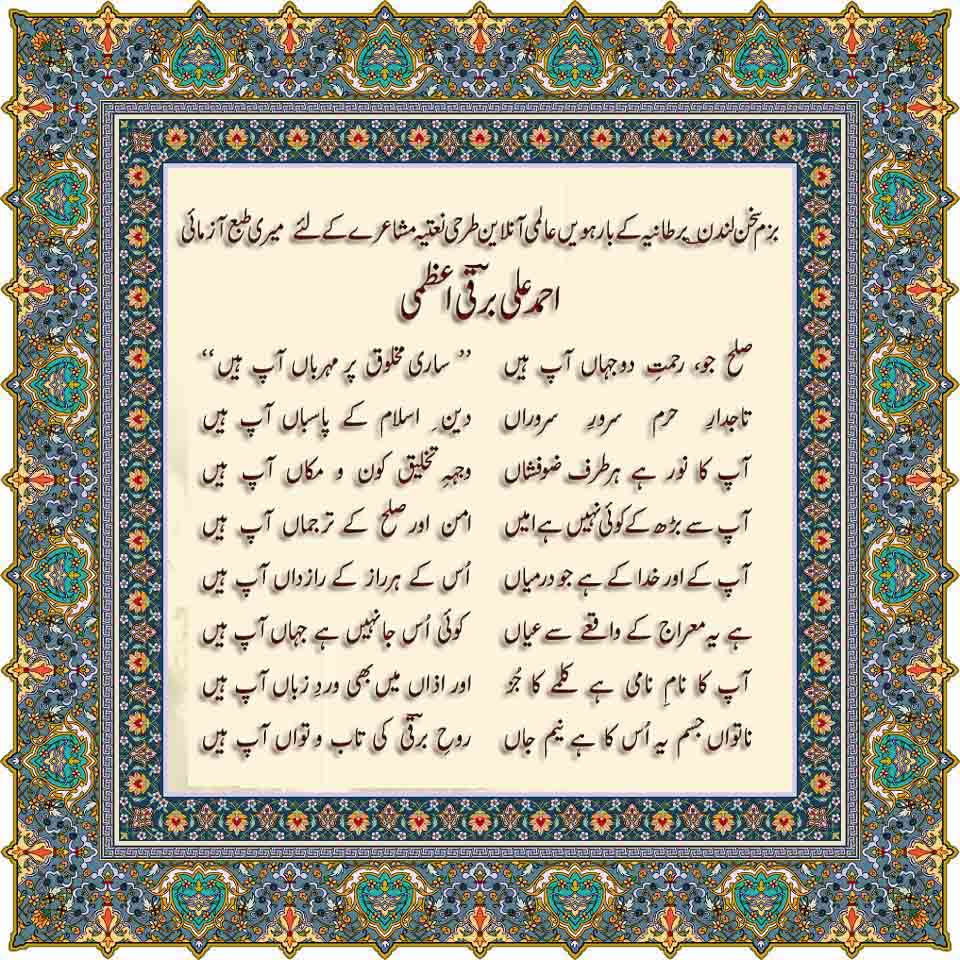 بزم سخن لندن برطانیہ کے بارہویں عالمی آنلاین طرحی نعتیہ مشاعرے کے لئے میری طبع آزمائی
احمد علی برقیؔ اعظمی
صلح جو، رحمتِ دوجہاں آپ ہیں ” ساری مخلوق پر مہرباں آپ ہیں“
تاجدارِ حرم سرورِ سروراں دینِ اسلام کے پاسباں آپ ہیں
آپ کا نور ہے ہرطرف ضوفشاں وجہِ تخلیق کون و مکاں آپ ہیں
آپ سے بڑھ کے کوئی نہیں ہے امیں امن اور صلح کے ترجماں آپ ہیں
آپ کے اور خدا کے ہے جو درمیاں اُس کے ہرراز کے رازداں آپ ہیں
ہے یہ معراج کے واقعے سے عیاں کوئی اُس جانہیں ہے جہاں آپ ہیں
آپ کا نامِ نامی ہے کلمے کا جُز اور اذاں میں بھی وردِ زباں آپ ہیں
ناتواں جسم یہ اُس کا ہے نیم جاں روحِ برقیؔ کی تاب و تواں آپ ہیں